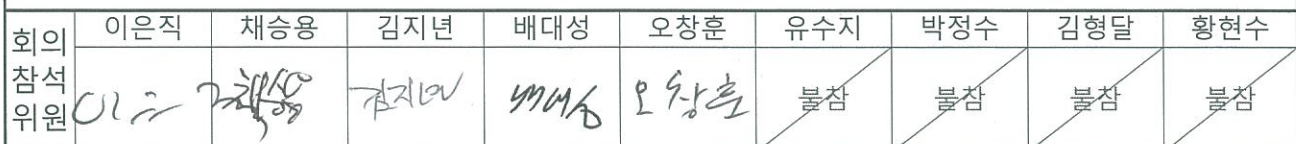 회의 참석 위원
이은직 채승용 김지년 배대성 오창훈 유수지 박정수 김형달 황현수
김지년 배대성 오창훈 불참 불참 불참 불참